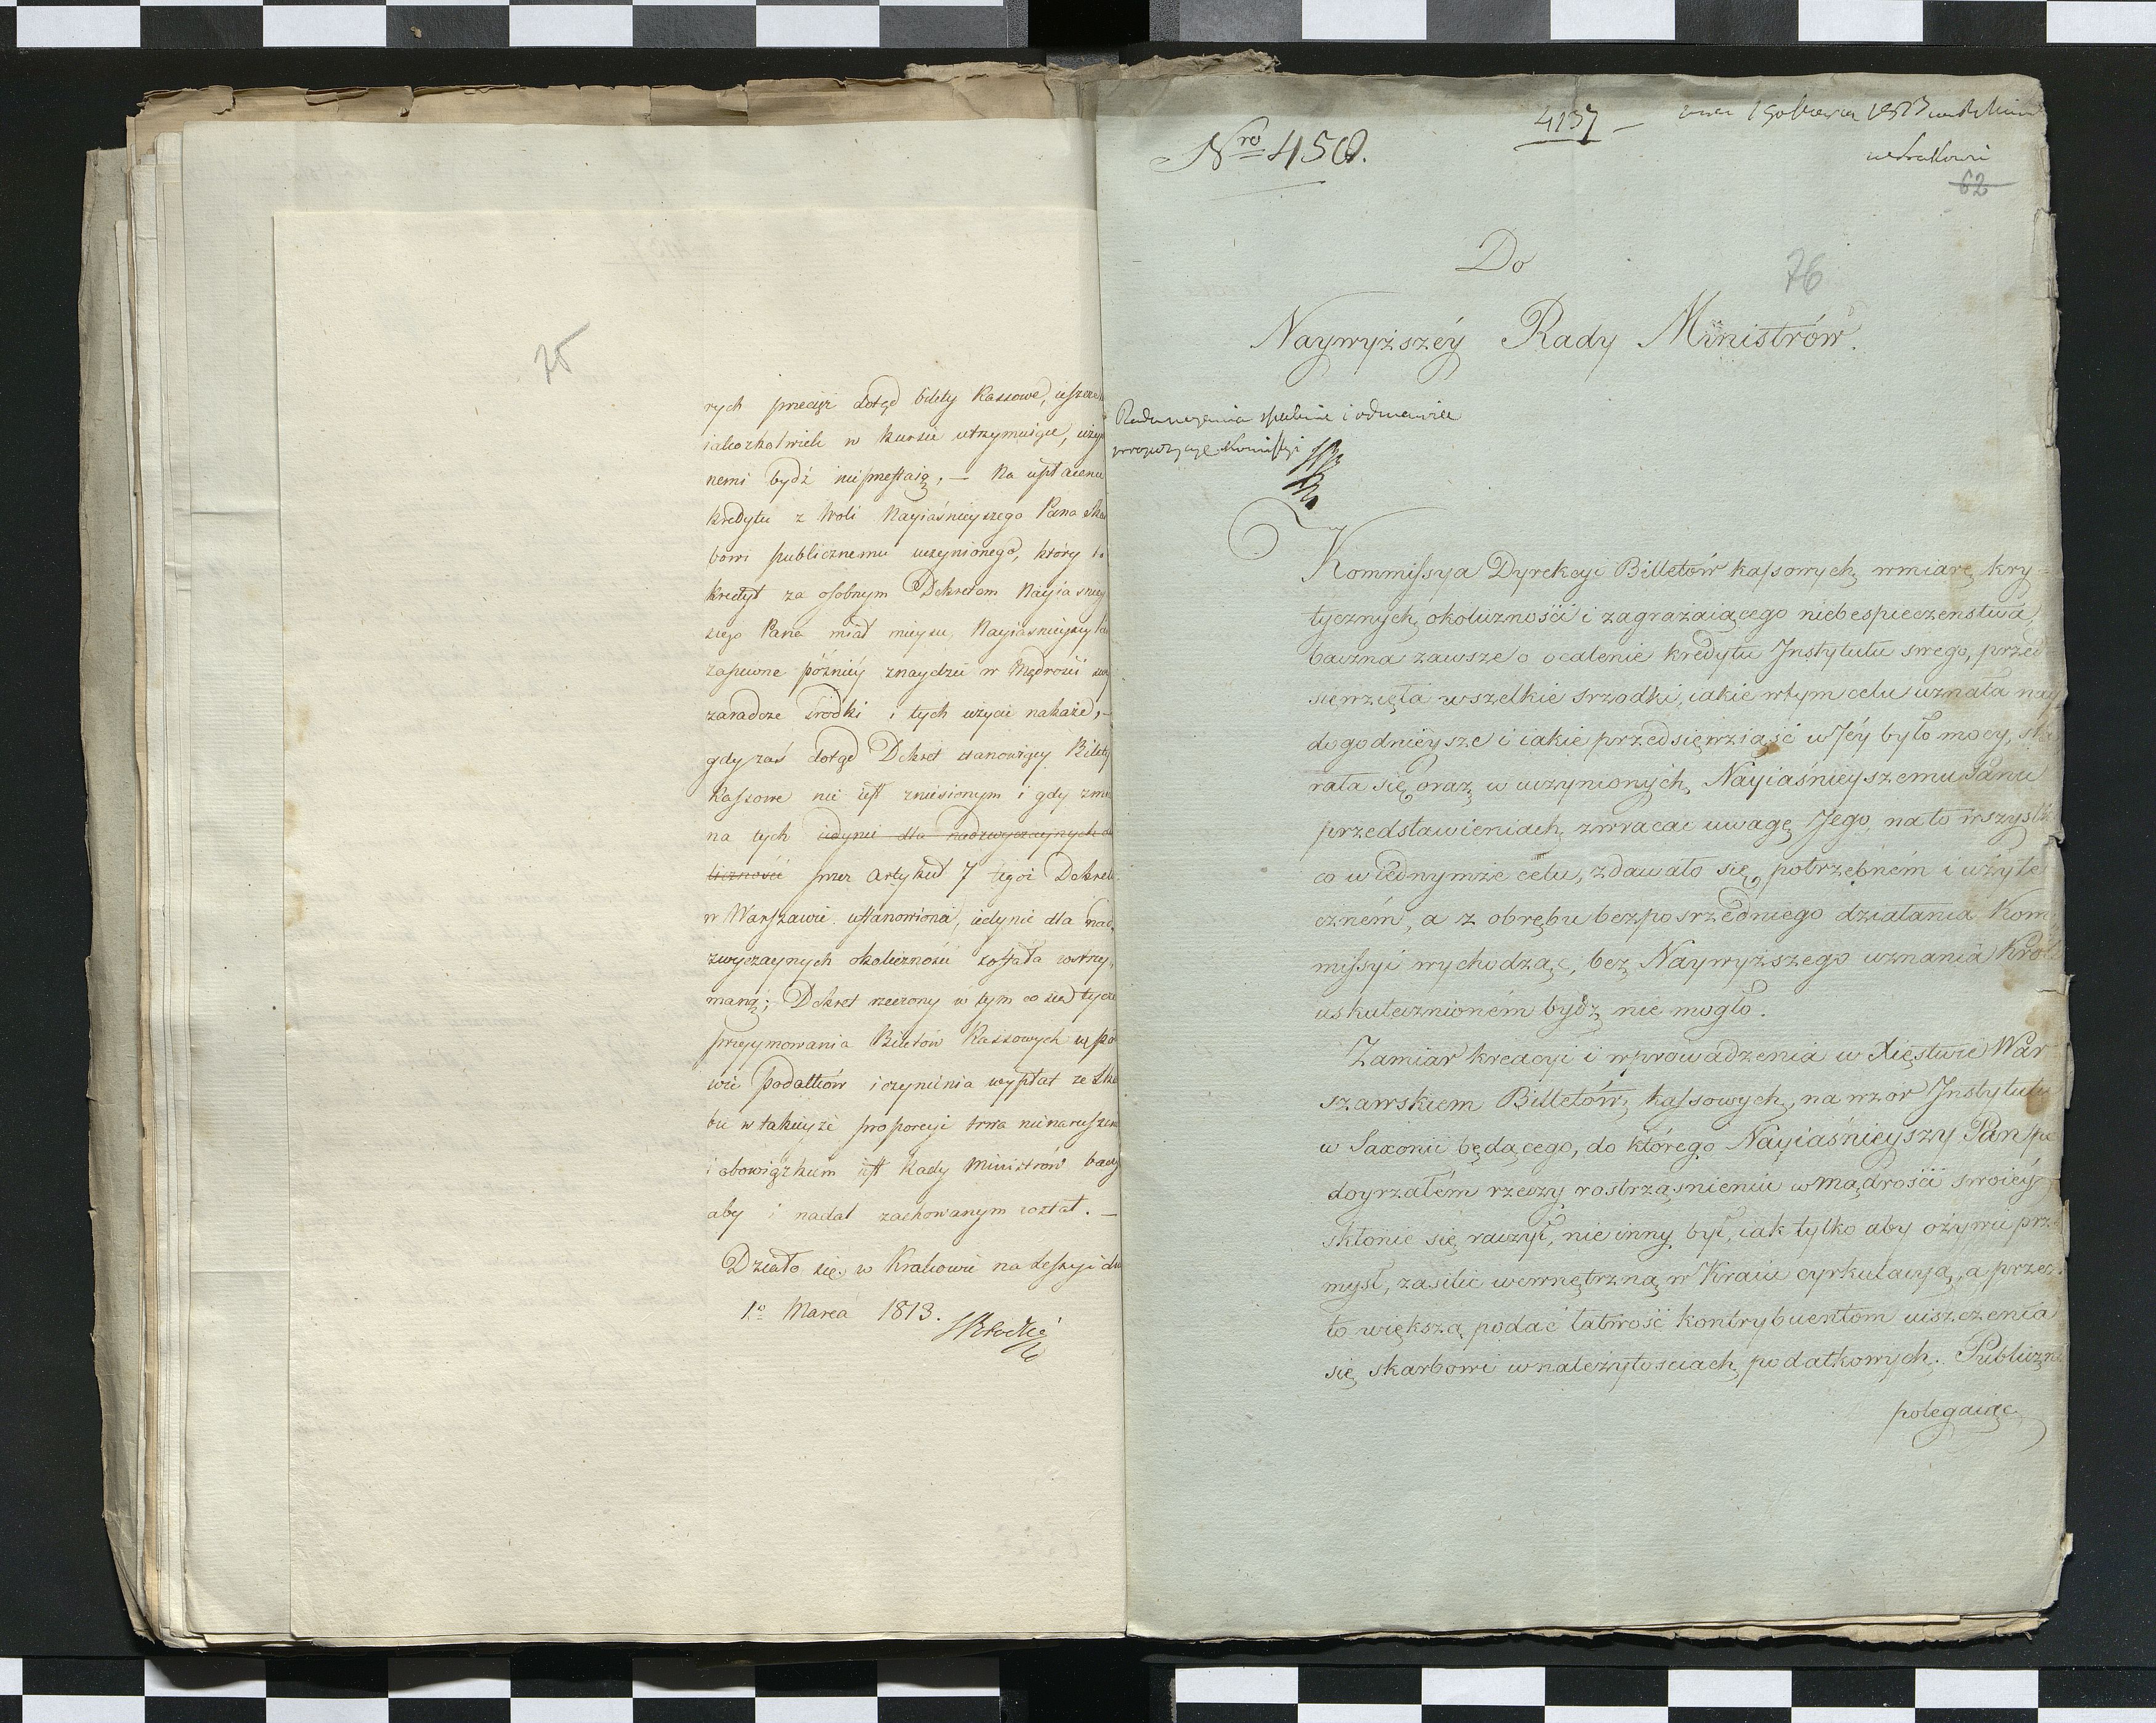 75
rych przecięż dotąd bilety Kassowe,
iakożkolwiek w kursie utrzymuiące,
nemi bydź nieprzestaią, — Na
kredytu z Woli Nayiaśnieyszego Pana
bowi publicznemu uczynionego, który
kredyt za osobnym Dekretem Nayiaśniey
szego Pana miał mieysce, Nayiaśnieyszy
zapewne późniey znaydzie w Mądrości
zaradcze środki i tych użycie nakaże, —
gdy zaś dotąd Dekret stanowiący Bilety
Kassowe nie iest zniesionym i gdy
na tych iedynie dla nadzwyczaynych oko
liczności przez Artykuł 7 tegoż Dekretu
w Warszawie ustanowiona, iedynie dla nad
zwyczaynych okoliczności została wstrzy
maną; Dekret rzeczony w tym co się tycze
przyymowania Biletów Kassowych w po
wie podatków i czynienia wypłat ze Ska
bu w takieyże proporcyi trwa nienaruszen
i obowiązkiem iest Rady Ministrów
aby i nadal zachowanym został. —
Działo się w Krakowie na Sessyi
1º Marca 1813.
Nro 458.
4137 —
w Krakowie
62
76
Do
Naywyższéy Rady Ministrów.
Kommissya Dyrekcyi Billetów kassowych, w miarę kry=
tycznych okoliczności i zagrażaiącego niebespieczenstwa,
baczna zawsze o ocalenie kredytu Instytutu swego, przed
sięwzięła wszelkie srzodki, iakie w tym celu uznała nay
dogodnieysze i iakie przedsięwziąść w Jéy było mocy, sta
rała się oraz w uczynionych Nayiaśnieyszemu Panu
przedstawieniach, zwracać uwagę Jego, na to wszystk
co w iednymże celu, zdawało się potrzebném i użyte
czném, a z obrębu bezposrzedniego działania Kom
missyi wychodząc, bez Naywyższego uznania Króla
uskutecznioném bydź nie mogło.
Zamiar kreacyi i wprowadzenia w Xięstwie War
szawskiem Billetów kassowych, na wzór Instytutu
w Saxonii będącego, do którego Nayiaśnieyszy Pan po
doyrzałém rzeczy rostrząsnieniu w mądrości swoiéy
skłonić się raczył, nie inny był, iak tylko aby ożywić prze
mysł, zasilić wewnętrzną w Kraiu cyrkulacyą, a przez
to większą podać łatwość kontrybuentom uiszczenia
się skarbowi w należytościach podatkowych. Publiczn
polegaiąc